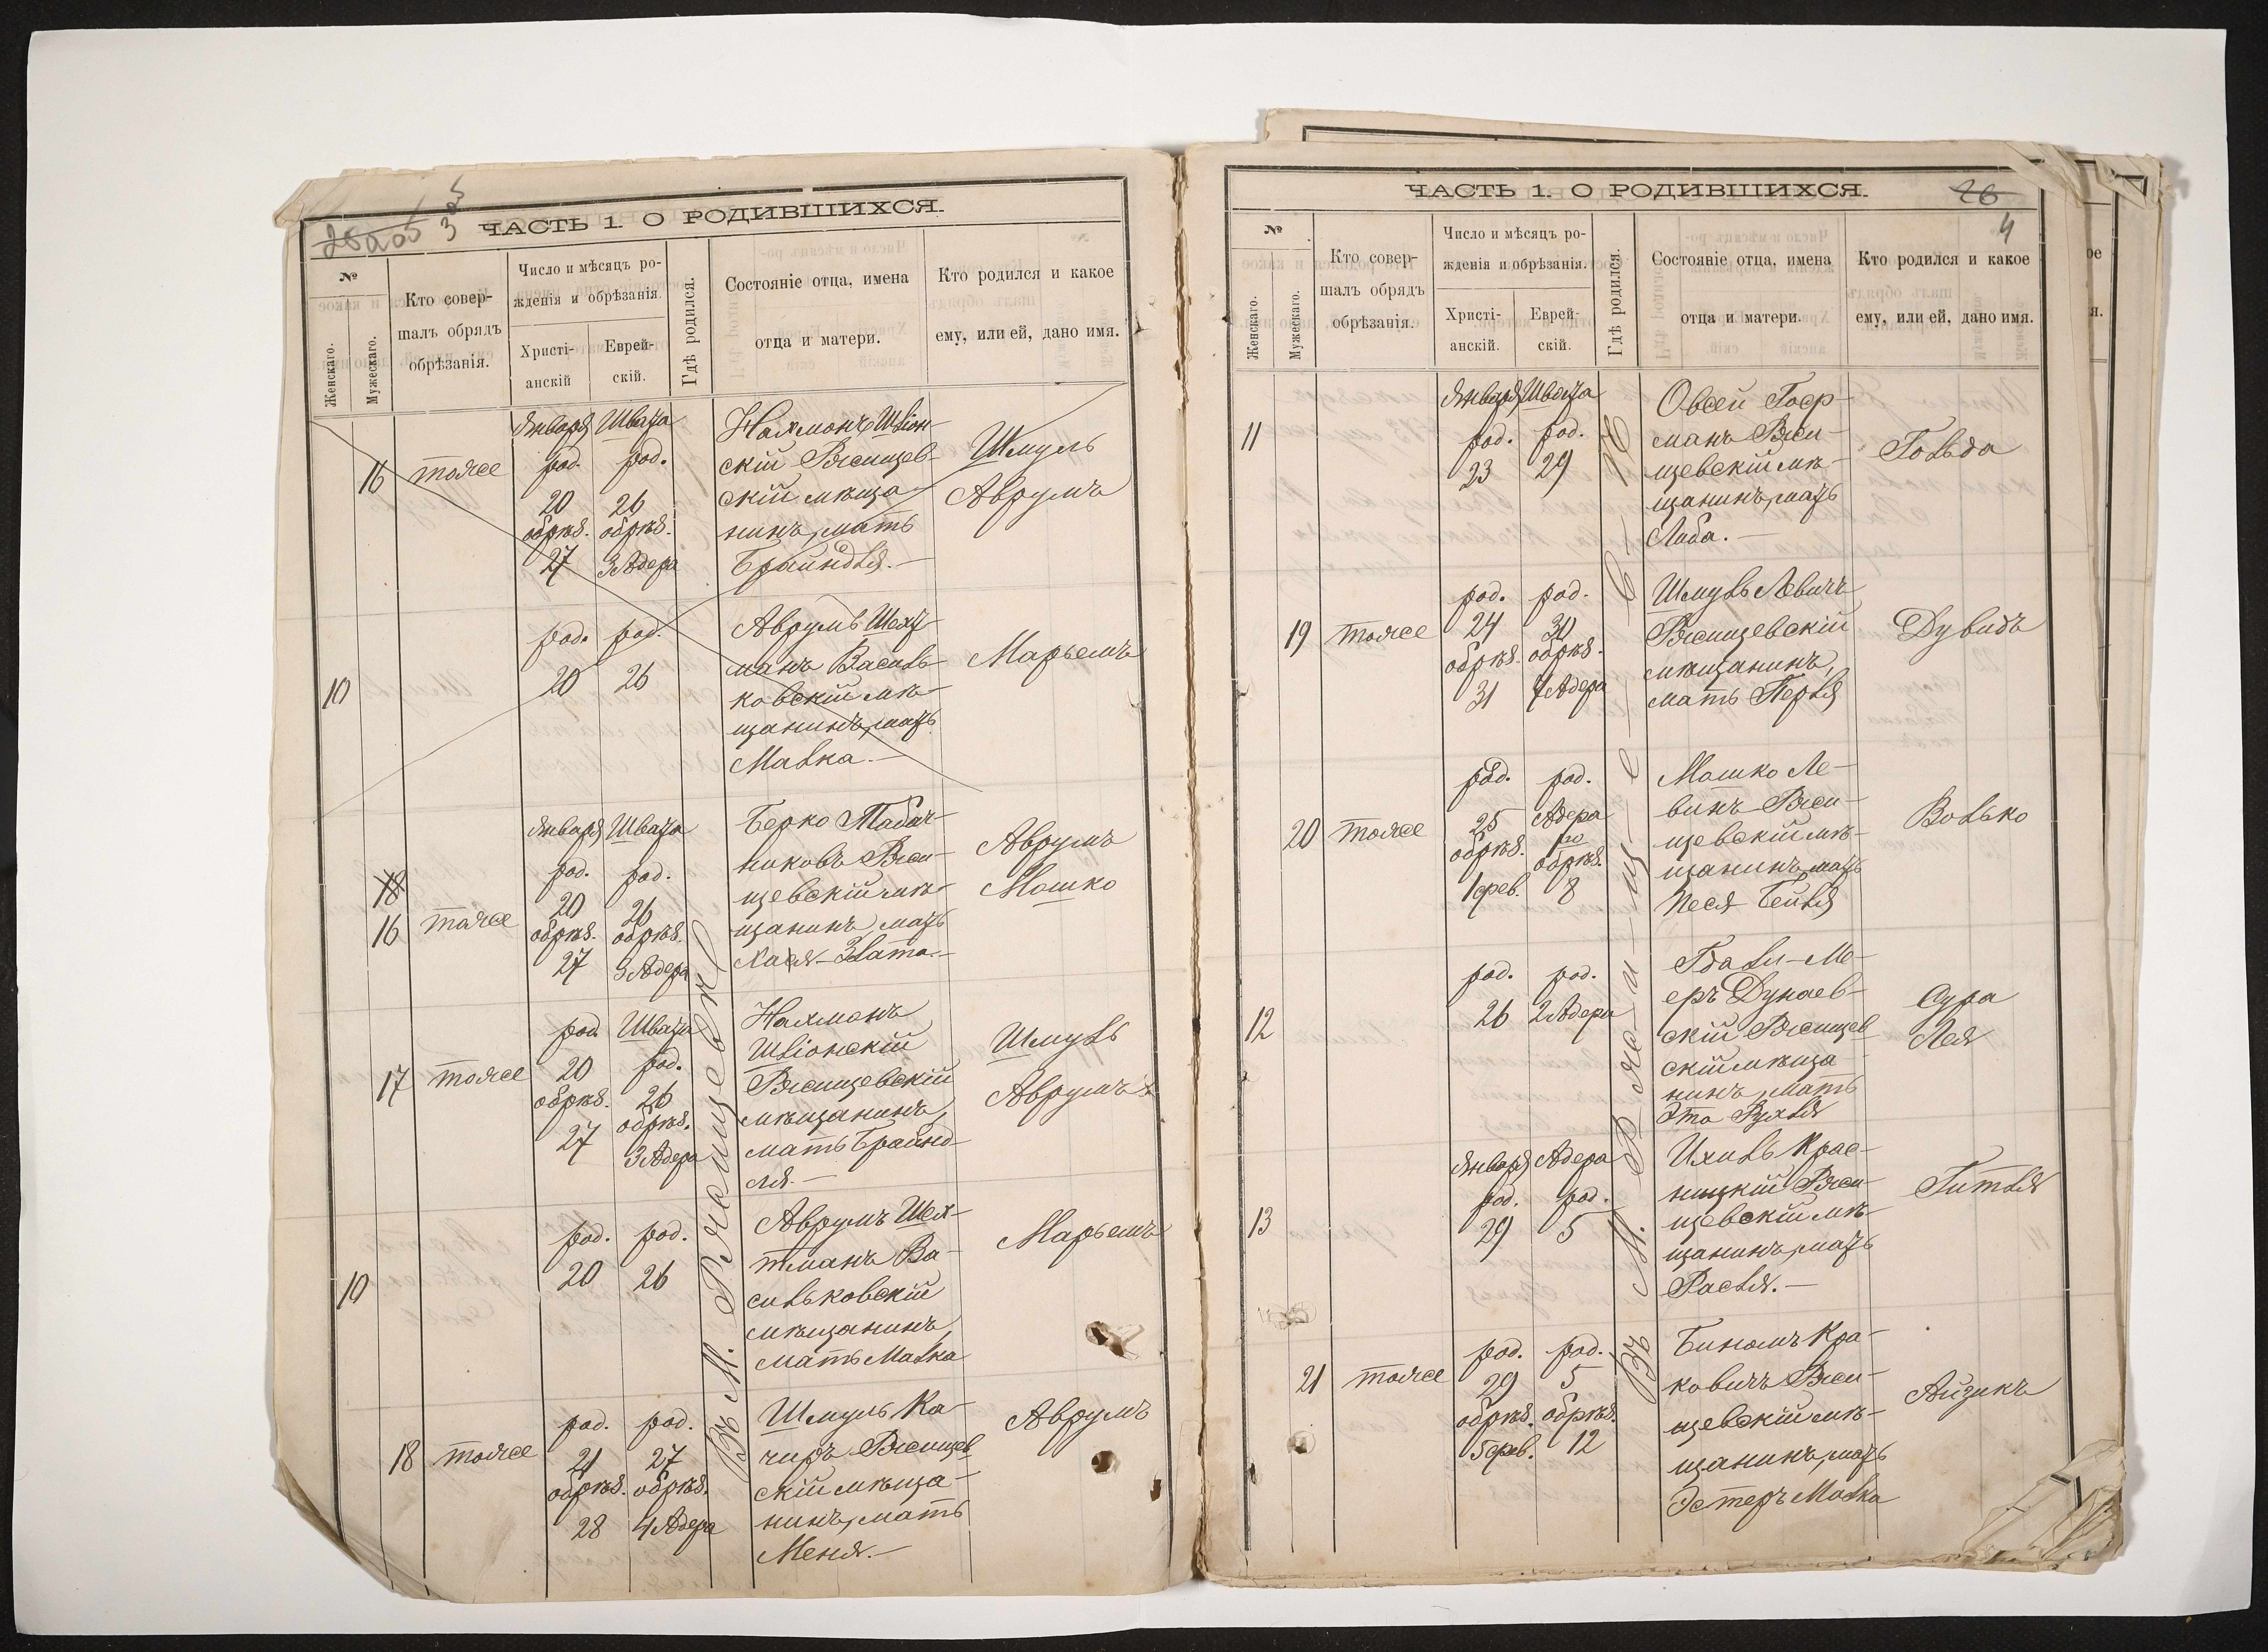 ЧАСТЬ 1. О РОДИВШИХСЯ.
№
Женскаго.
Мужескаго.
Кто совер-
шалъ обрядъ
обрѣзанія.
Число и мѣсяцъ ро-
жденія и обрѣзанія.
Христі-
анскій
Еврей-
скій.
Гдѣ родился.
Состояніе отца, имена
отца и матери.
Кто родился и какое
ему, или ей, дано имя.
16
тоже
Января
род.
20
обрѣз.
27
Швата
род.
26
обрѣз.
3 Адера
Нахмонъ Шліон-
скій Ржищев-
скій мѣща-
нинъ, мать
Брайндля.—
Шмуль
Аврумъ
10
род.
20
род.
26
Аврумъ Шехт-
манъ Василь-
ковскій мѣ-
щанинъ, мать
Малка.—
Марьемъ
18
16
тоже
Января
род.
20
обрѣз.
27
Швата
род.
26
обрѣз.
3 Адера
Берко Табач-
никовъ Ржи-
щевскій мѣ-
щанинъ, мать
Хая-Злата.—
Аврумъ
Мошко
17
тоже
род.
20
обрѣз.
27
Швата
род.
26
обрѣз.
3 Адера
Нахмонъ
Шліонскій
Ржищевскій
мѣщанинъ,
мать Брайнд-
ля.—
Шмуль
Аврумъ
10
род.
20
род.
26
Аврумъ Шех-
тманъ Ва-
сильковскій
мѣщанинъ,
мать Малка
Марьемъ
18
тоже
род.
21
обрѣз.
28
род.
27
обрѣз.
4 Адера
Шмуль Ка-
чиръ Ржищев
скій мѣща-
нинъ, мать
Меня.—
Аврумъ
Въ М. Ржищевѣ
ЧАСТЬ 1. О РОДИВШИХСЯ.
26
4
№
Женскаго.
Мужескаго.
Кто совер-
шалъ обрядъ
обрѣзанія.
Число и мѣсяцъ ро-
жденія и обрѣзанія.
Христі-
анскій.
Еврей-
скій.
Гдѣ родился.
Состояніе отца, имена
отца и матери.
Кто родился и какое
ему, или ей, дано имя.
11
Января
род.
23
Швата
род.
29
Овсей Гоер-
манъ Ржи-
щевскій мѣ-
щанинъ, мать
Либа.—
Гольда
19
тоже
род.
24
обрѣз.
31
род.
30
обрѣз.
7 Адера
Шмуль Левичъ
Ржищевскій
мѣщанинъ,
мать Перля
Дувидъ
20
тоже
род.
25
обрѣз.
1 фев.
род.
Адера
обрѣз.
8
Мошко Ле-
винъ Ржи-
щевскій мѣ-
щанинъ, мать
Песя Бейля
Волько
12
род.
26
род.
2 Адера
Ме-
еръ Дунаев-
скій Ржищев
скій мѣща-
нинъ, мать
Эта Рухля
Сура
Лея
13
Января
род.
29
Адера
род.
5
Ихиль Крас-
ницкій Ржи-
щевскій мѣ-
щанинъ, мать
Расля.—
Гитля
21
тоже
род.
29
обрѣз.
5 фев.
род.
5
обрѣз.
12
Биномъ Кра-
ковичъ Ржи-
щевскій мѣ-
щанинъ, мать
Эстеръ Малка
Айзикъ
Въ М. Ржищевѣ